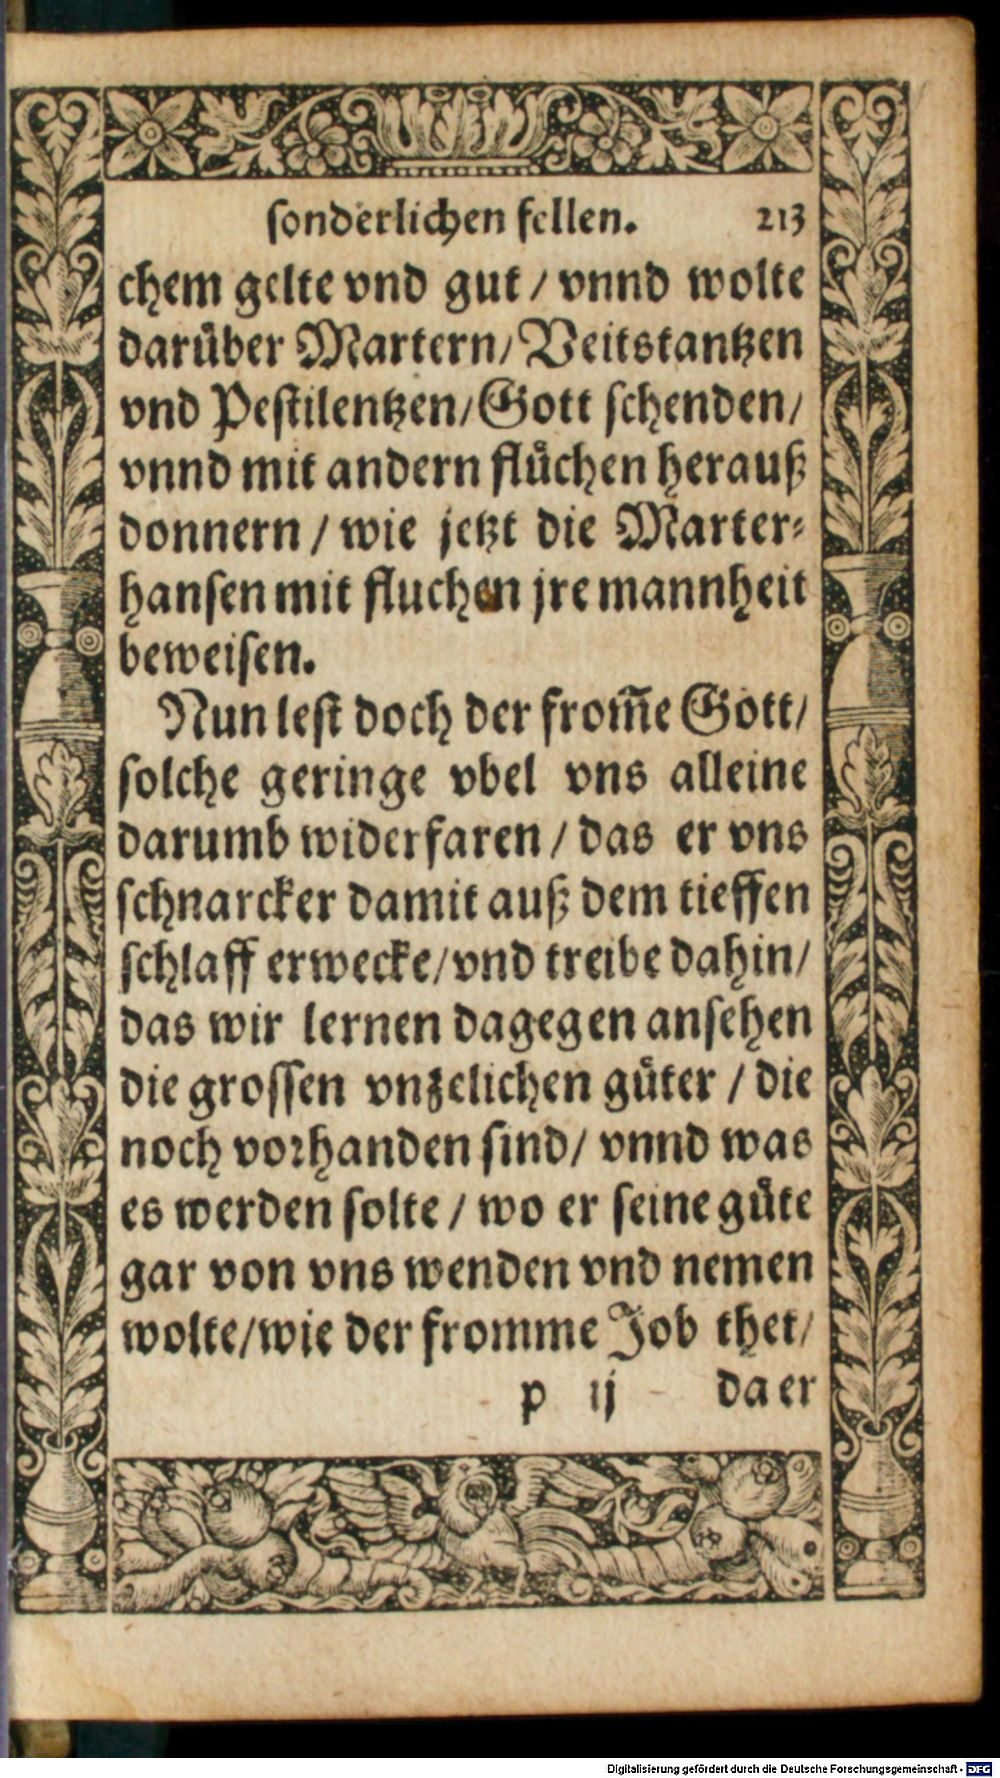 sonderlichen fellen. 213
chem gelte vnd gut / vnnd wolte
darüber Martern/ Veitstantzen
vnd Pestilentzen/ Gott schenden/
vnnd mit andern flüchen herauß
donnern / wie jetzt die Marter-
hansen mit fluchen jre mannheit
beweisen.
Nun lest doch der from̃e Gott/
solche geringe vbel vns alleine
darumb widerfaren / das er vns
schnarcker damit auß dem tieffen
schlaff erwecke/ vnd treibe dahin/
das wir lernen dagegen ansehen
die grossen vnzelichen güter / die
noch vorhanden sind/ vnnd was
es werden solte / wo er seine güte
gar von vns wenden vnd nemen
wolte/ wie der fromme Job thet/
p ij da er
Digitalisierung gefördert durch die Deutsche Forschungsgemeinschaft - DFG